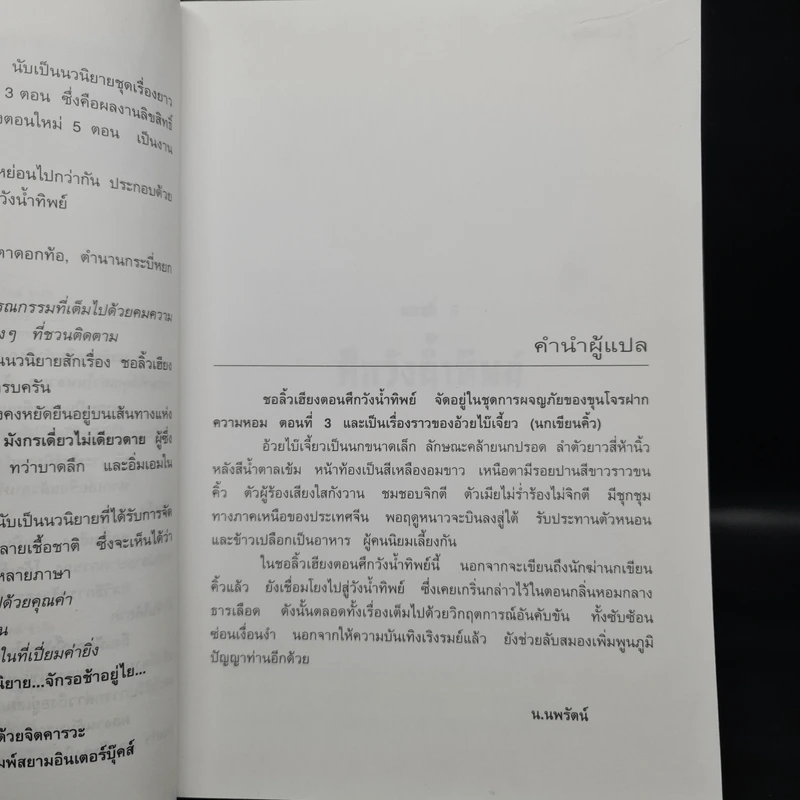 นับเป็นนวนิยายชุดเรื่องยาว
3 ตอน ซึ่งคือผลงานลิขสิทธิ์
งตอนใหม่ 5 ตอน เป็นงาน
หย่อนไปกว่ากัน ประกอบด้วย
วังน้ำทิพย์
ตาดอกท้อ, ตำนานกระบี่หยก
รณกรรมที่เต็มไปด้วยคมความ
งๆ ที่ชวนติดตาม
นนวนิยายสักเรื่อง ชอลิ้วเฮียง
ครบครัน
งคงหยัดยืนอยู่บนเส้นทางแห่ง
มังกรเดี่ยวไม่เดียวดาย ผู้ซึ่ง
ทว่าบาดลึก และอิ่มเอมใน
นับเป็นนวนิยายที่ได้รับการจัด
ลายเชื้อชาติ ซึ่งจะเห็นได้ว่า
หลายภาษา
ปด้วยคุณค่า
น
ในที่เปี่ยมค่ายิ่ง
นิยาย...จักรอช้าอยู่ไย...
ด้วยจิตคารวะ
มพ์สยามอินเตอร์บุ๊คส์
คำนำผู้แปล
ชอลิ้วเฮียงตอนศึกวังน้ำทิพย์ จัดอยู่ในชุดการผจญภัยของขุนโจรฝาก
ความหอม ตอนที่ 3 และเป็นเรื่องราวของอ้วยไบ๊เจี้ยว (นกเขียนคิ้ว)
อ้วยไบ๊เจี้ยวเป็นนกขนาดเล็ก ลักษณะคล้ายนกปรอด ลำตัวยาวสี่ห้านิ้ว
หลังสีน้ำตาลเข้ม หน้าท้องเป็นสีเหลืองอมขาว เหนือตามีรอยปานสีขาวราวขน
คิ้ว ตัวผู้ร้องเสียงใสกังวาน ชมชอบจิกตี ตัวเมียไม่ร่ำร้องไม่จิกตี มีชุกชุม
ทางภาคเหนือของประเทศจีน พอฤดูหนาวจะบินลงสู่ใต้ รับประทานตัวหนอน
และข้าวเปลือกเป็นอาหาร ผู้คนนิยมเลี้ยงกัน
ในชอลิ้วเฮียงตอนศึกวังน้ำทิพย์นี้ นอกจากจะเขียนถึงนักฆ่านกเขียน
คิ้วแล้ว ยังเชื่อมโยงไปสู่วังน้ำทิพย์ ซึ่งเคยเกริ่นกล่าวไว้ในตอนกลิ่นหอมกลาง
ธารเลือด ดังนั้นตลอดทั้งเรื่องเต็มไปด้วยวิกฤตการณ์อันคับขัน ทั้งซับซ้อน
ซ่อนเงื่อนงำ นอกจากให้ความบันเทิงเริงรมย์แล้ว ยังช่วยลับสมองเพิ่มพูนภูมิ
ปัญญาท่านอีกด้วย
น.นพรัตน์